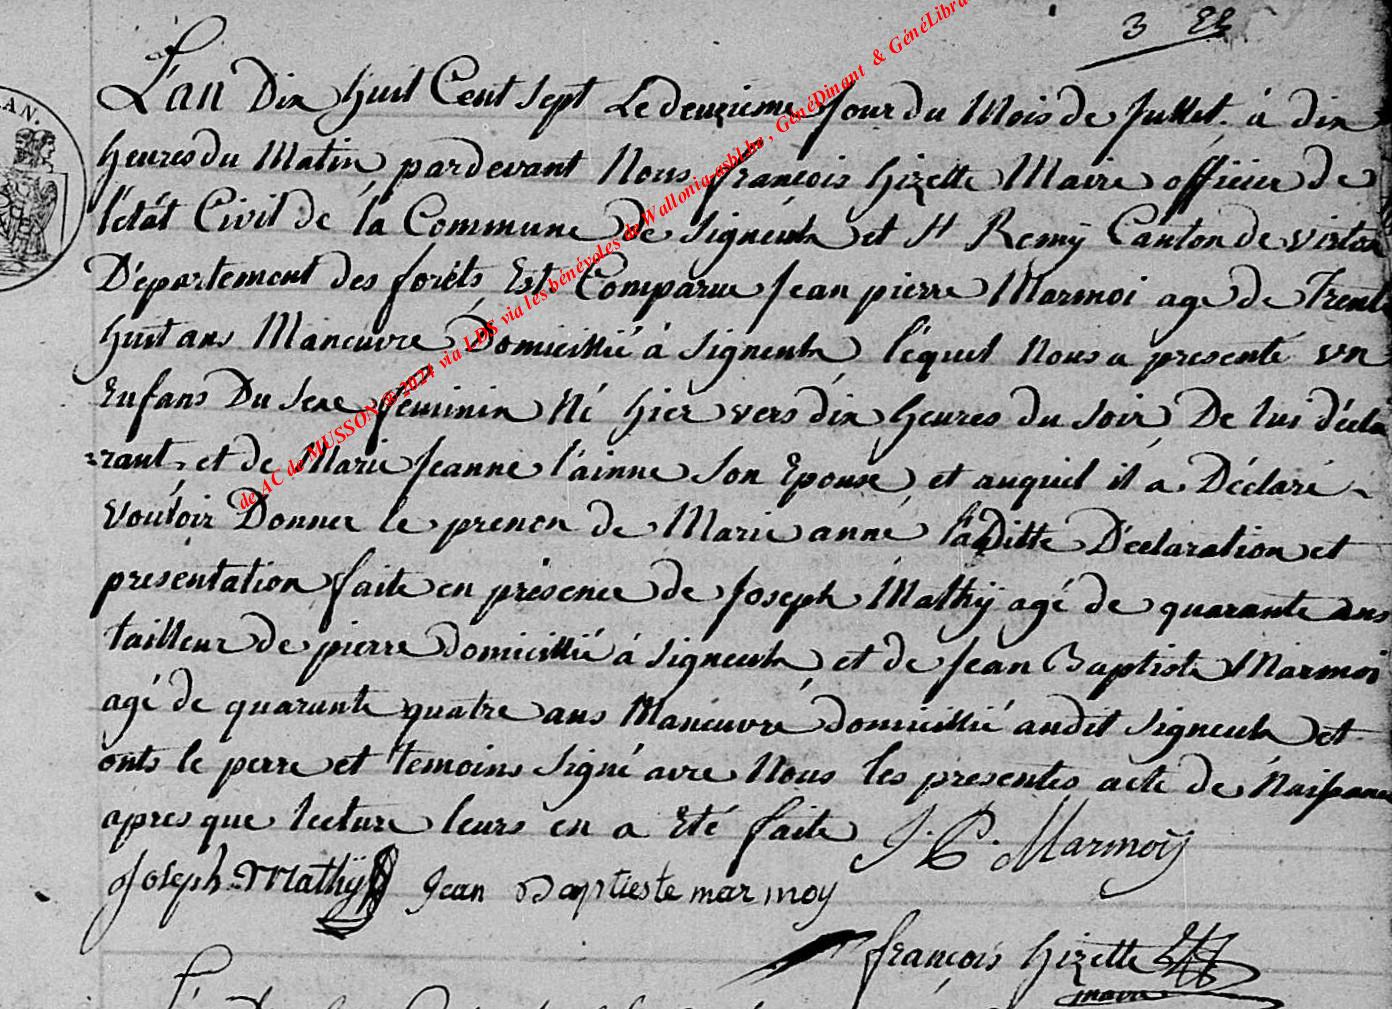 3
L'an Dix huit Cent Sept Le deuzieme Jour du Mois de Jullet à dix
heures du Matin pardevant Nous françois hizette Maire officier de
l'état Civil de la Commune de Signeulx et St Remÿ Canton de Virton
Département des forêts Est Comparue Jean pierre Marmoi age de Trente
huit ans Maneuvre Domicillié à Signeulx léquel Nous a presenté un
Enfans Du Sexe féminin Né hier vers dix heures du Soir De lui décla
rant et de Marie Jeanne l'ainne Son Epouse et auquel il a Déclaré
Vouloir Donner le prenon de Marie anne laditte Déclaration et
presentation faite en présence de Joseph Mathÿ agé de quarante ans
tailleur de pierre domicillié à Signeulx et de Jean Baptiste Marmoi
agé de quarante quatre ans Maneuvre domicillié audit Signeulx et
onts le perre et temoins Signé avec Nous les presentes acte de Naissance
apres que lecture leurs en a Eté faite J. P. Marmoÿ
Joseph Mathÿ Jean Baptieste marmoy
françois hizette
maire
AN.
de AC de MUSSON @ 2024 via LDS via les bénévoles de Wallonia-asbl.be, GénéDinant & GénéLibra